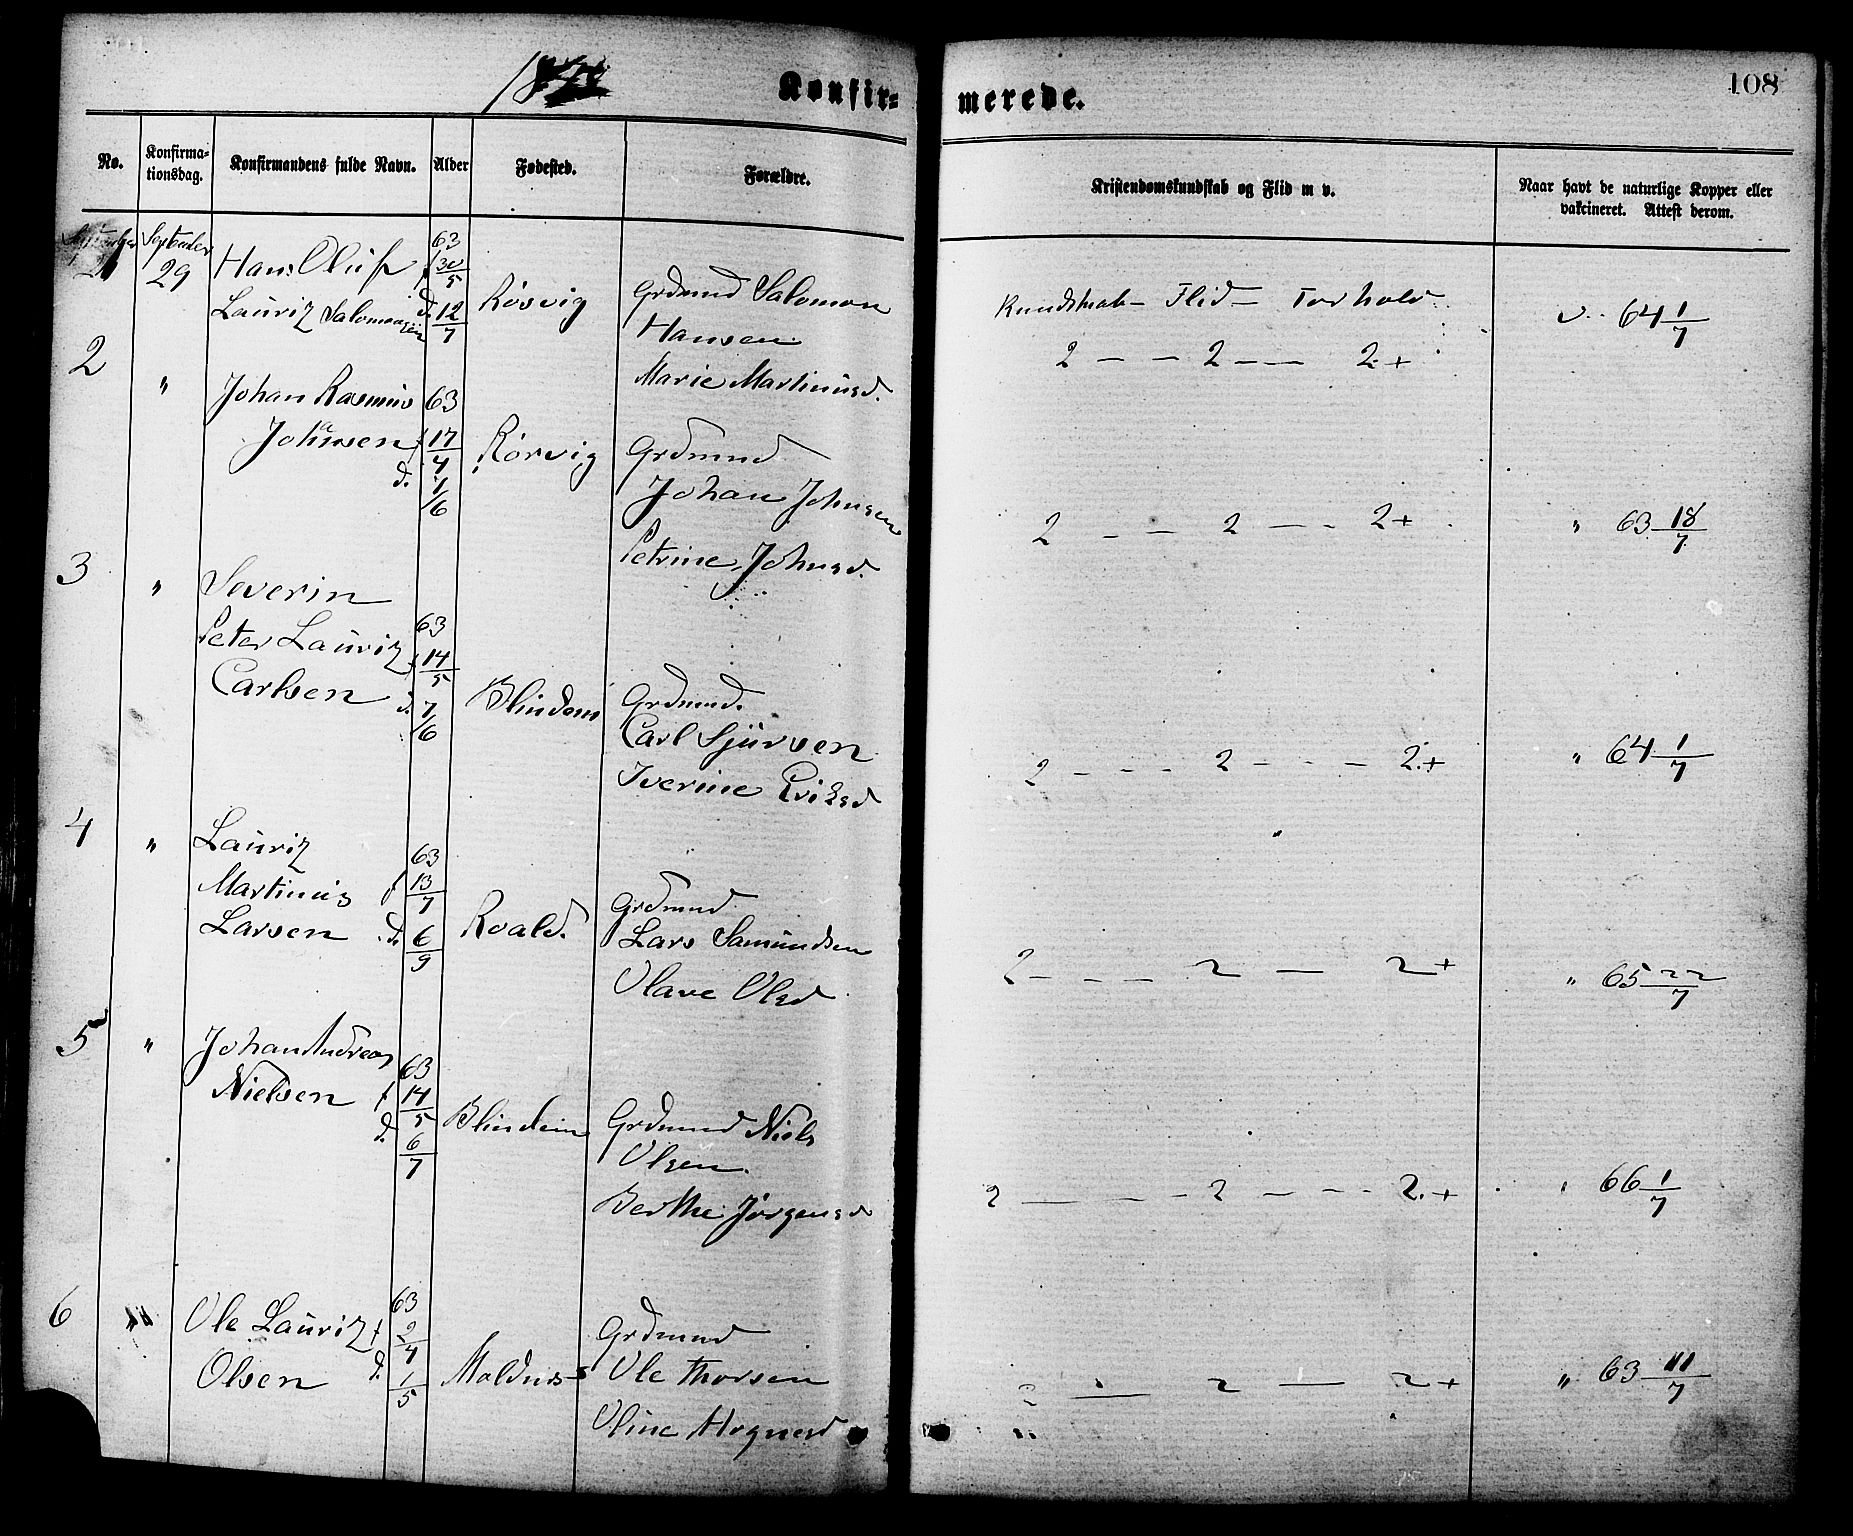 Konfir-
merede.
108
No.
Konfirma-
tionsdag.
Konfirmandens fulde Navn.
Alder
Fødested.
Forældre.
Kristendomskundskab og Flid m v.
Naar havt de naturlige Kopper eller
vakcineret. Attest derom.
1
September
29
Hans Oluf
Lauriz Salomonsen
63
f 30/5
d. 12/7
Rösvig
Grdmnd Salomon
Hansen
Marie Martinusd.
Kundskab - Flid - Forhold
2 - - 2 - - 2+
v. 64 1/7
2
"
Johan Rasmus
Johnsen
63
f 17/4
d. 7/6
Rørvig
Grdmnd
Johan Johnsen
Petrine Johnsd.
2 - - 2 - - 2+
" 63 18/7
3
"
Severin
Peter Lauriz
Carlsen
63
f 14/5
d. 7/6
Blindem
Grdmnd.
Carl Sjursen
Iverine Eriksd
2 - - - 2 - - - 2+
" 64 1/7
4
"
Lauriz
Martinus
Larsen
63
f 13/7
d. 6/9
Roald.
Grdmnd
Lars Samundsen
Olave Olsd
2 - - - 2 - 2+
" 65 22/7
5
"
Johan Andreas
Nielsen
63
f 14/5
d. 6/7
Blindeim
Grdmnd Niels
Olsen
Berthe Jörgensd
2 - - - 2 - - - 2+
" 66 1/7
6
"
Ole Lauriz
Olsen
63
f 2/4
d. 1/5
Moldnes
Grdmnd
Ole Thorsen
Oline Hognesd
2 - 2 - 2+
" 63 11/7